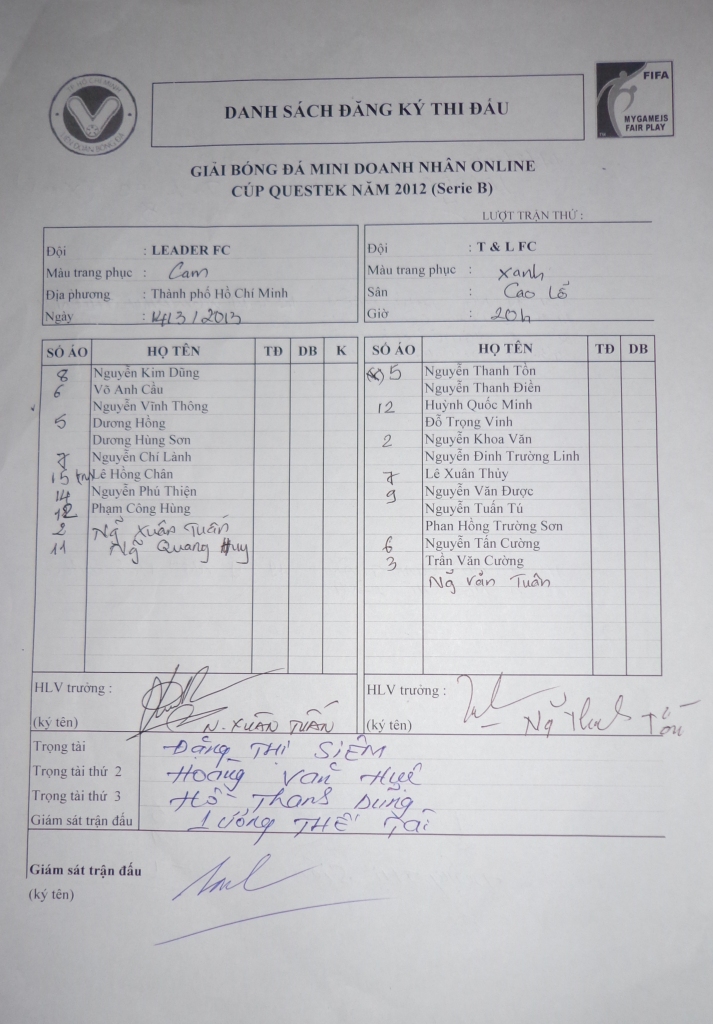 DANH SÁCH ĐĂNG KÝ THI ĐẤU
FIFA
MYGAMEIS
FAIR PLAY
GIẢI BÓNG ĐÁ MINI DOANH NHÂN ONLINE
CÚP QUESTEK NĂM 2012 (Serie B)
LƯỢT TRẬN THỨ :
Đội : LEADER FC
Màu trang phục : Cam
Địa phương : Thành phố Hồ Chí Minh
Ngày : 14/3/2013
Đội : T & L FC
Màu trang phục : Xanh
Sân : Cao Lỗ
Giờ : 20h
SỐ ÁO HỌ TÊN TĐ DB K
8 Nguyễn Kim Dũng
6 Võ Anh Cầu
Nguyễn Vĩnh Thông
5 Dương Hồng
Dương Hùng Sơn
7 Nguyễn Chí Lành
15 Lê Hồng Chân
14 Nguyễn Phú Thiện
12 Phạm Công Hùng
2 Ng~ Xuân Tuấn
11 Ng~ Quang Huy
SỐ ÁO HỌ TÊN TĐ DB
5 Nguyễn Thanh Tồn
Nguyễn Thanh Điền
12 Huỳnh Quốc Minh
Đỗ Trọng Vinh
2 Nguyễn Khoa Văn
Nguyễn Đình Trường Linh
7 Lê Xuân Thủy
9 Nguyễn Văn Được
Nguyễn Tuấn Tú
Phan Hồng Trường Sơn
6 Nguyễn Tấn Cường
3 Trần Văn Cường
Ng~ Văn Tuân
HLV trưởng :
(ký tên) N. XUÂN TUẤN
HLV trưởng :
(ký tên) Ng~ Tồn
Trọng tài ĐẶNG THỊ SIÊM
Trọng tài thứ 2 Hoàng Văn Huệ
Trọng tài thứ 3 Hồ Thanh Dũng
Giám sát trận đấu LƯƠNG THẾ TÀI
Giám sát trận đấu
(ký tên)